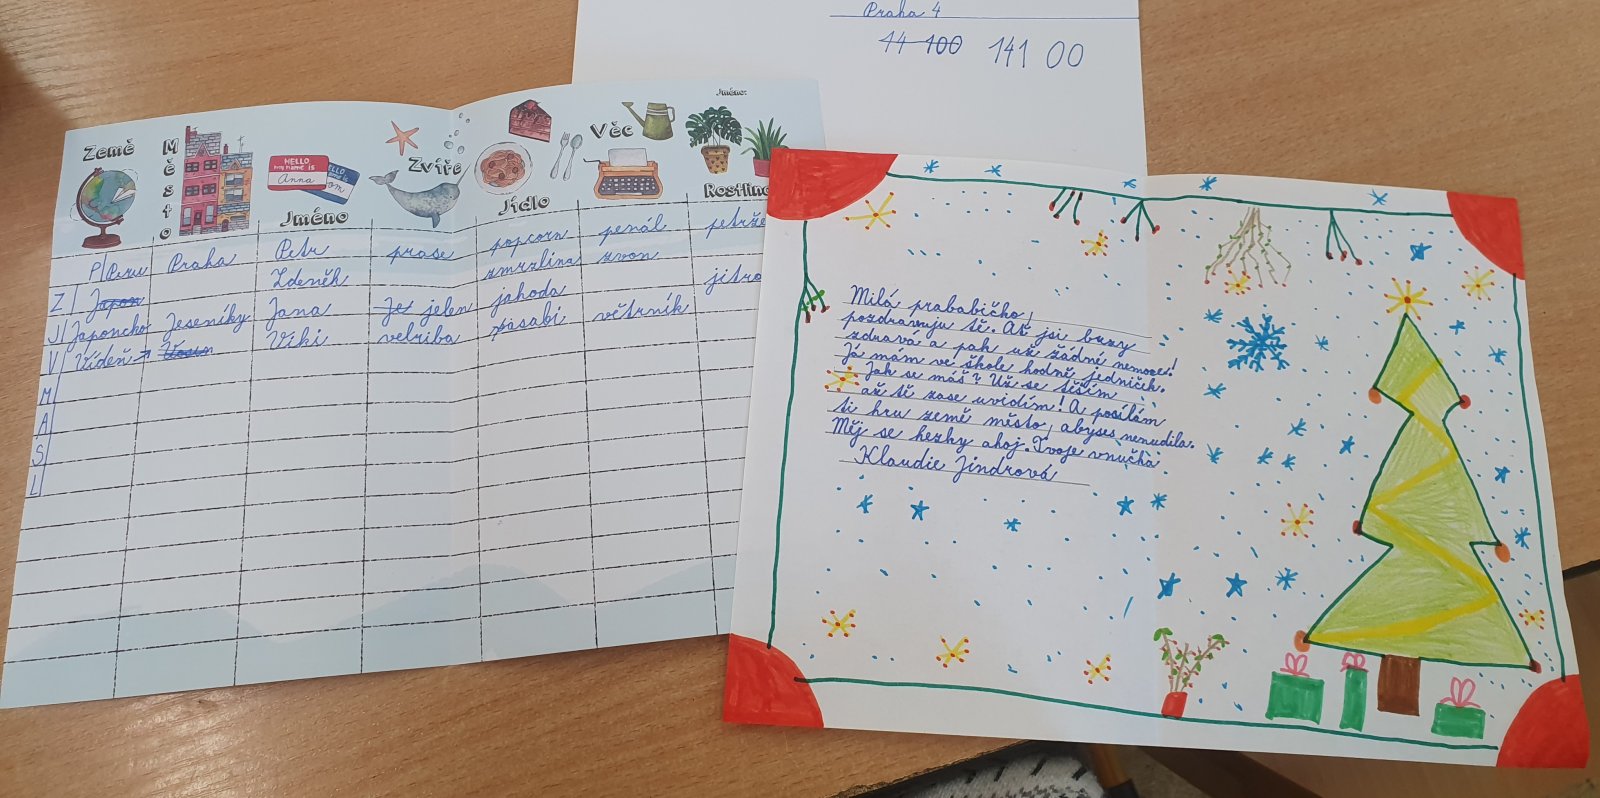 Praha 4
14 100 141 00
Jméno:
Země Město Jméno Zvíře Jídlo Věc Rostlina
HELLO
my name is
Anna
HELLO
P Peru Praha Petr prase popcorn penál petrže
Z Japon Zdeněk zmrzlina zvon
J Japoncko Jeseníky Jana Je jelen jahoda jitro
V Vídeň → Viki velriba vasabi větrník
M
A
S
L
Milá prababičko,
pozdravuju tě. Ať jsi brzy
zdravá a pak už žádné nemoce!
Já mám ve škole hodně jedniček.
Jak se máš? Už se těším
až tě zase uvidím! A posílám
ti hru země město, abyses nenudila.
Měj se hezky ahoj. Tvoje vnučka
Klaudie Jindrová